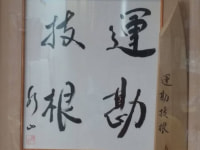 運勘
技根
運勘技根